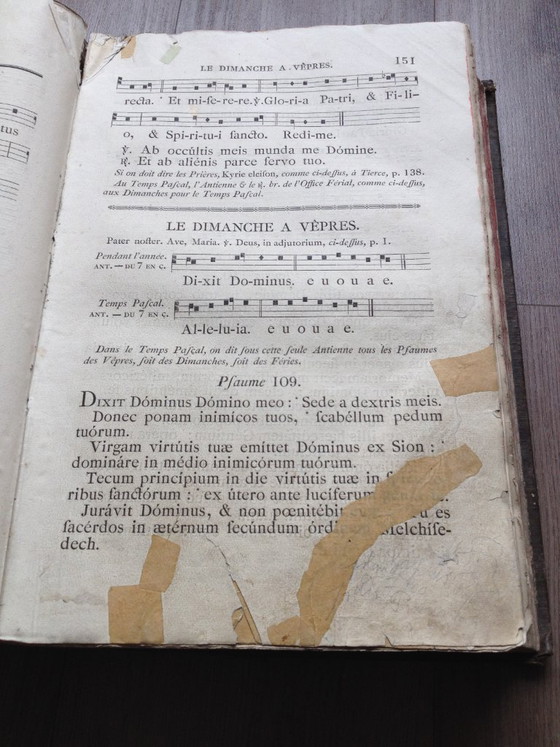 tus
LE DIMANCHE A VÊPRES.
151
recta. * Et mi-ſe-re-re. ℣. Glo-ri-a Pa-tri, & Fi-li-
o, & Spi-ri-tu-i ſancto. Redi-me.
℣. Ab occúltis meis munda me Dómine.
℟. Et ab aliénis parce ſervo tuo.
Si on doit dire les Prières, Kyrie eleiſon, comme ci-deſſus, à Tierce, p. 138.
Au Temps Paſcal, l'Antienne & le ℟. br. de l'Office Férial, comme ci-deſſus,
aux Dimanches pour le Temps Paſcal.
LE DIMANCHE A VÊPRES.
Pater noſter. Ave, Maria. ℣. Deus, in adjutorium, ci-deſſus, p. 1.
Pendant l'année.
ANT. — DU 7 EN C.
Di-xit Do-minus. e u o u a e.
Temps Paſcal.
ANT. — DU 7 EN C.
Al-le-lu-ia. e u o u a e.
Dans le Temps Paſcal, on dit ſous cette ſeule Antienne tous les Pſaumes
des Vêpres, ſoit des Dimanches, ſoit des Féries.
Pſaume 109.
DIXIT Dóminus Dómino meo : * Sede a dextris meis.
Donec ponam inimícos tuos, * ſcabéllum pedum
tuórum.
Virgam virtútis tuæ emíttet Dóminus ex Sion : *
domináre in médio inimicórum tuórum.
Tecum princípium in die virtútis tuæ in
ribus ſanctórum : * ex útero ante lucíferum
Jurávit Dóminus, & non pœnitébit es
ſacérdos in ætérnum ſecúndum Melchiſe-
dech.